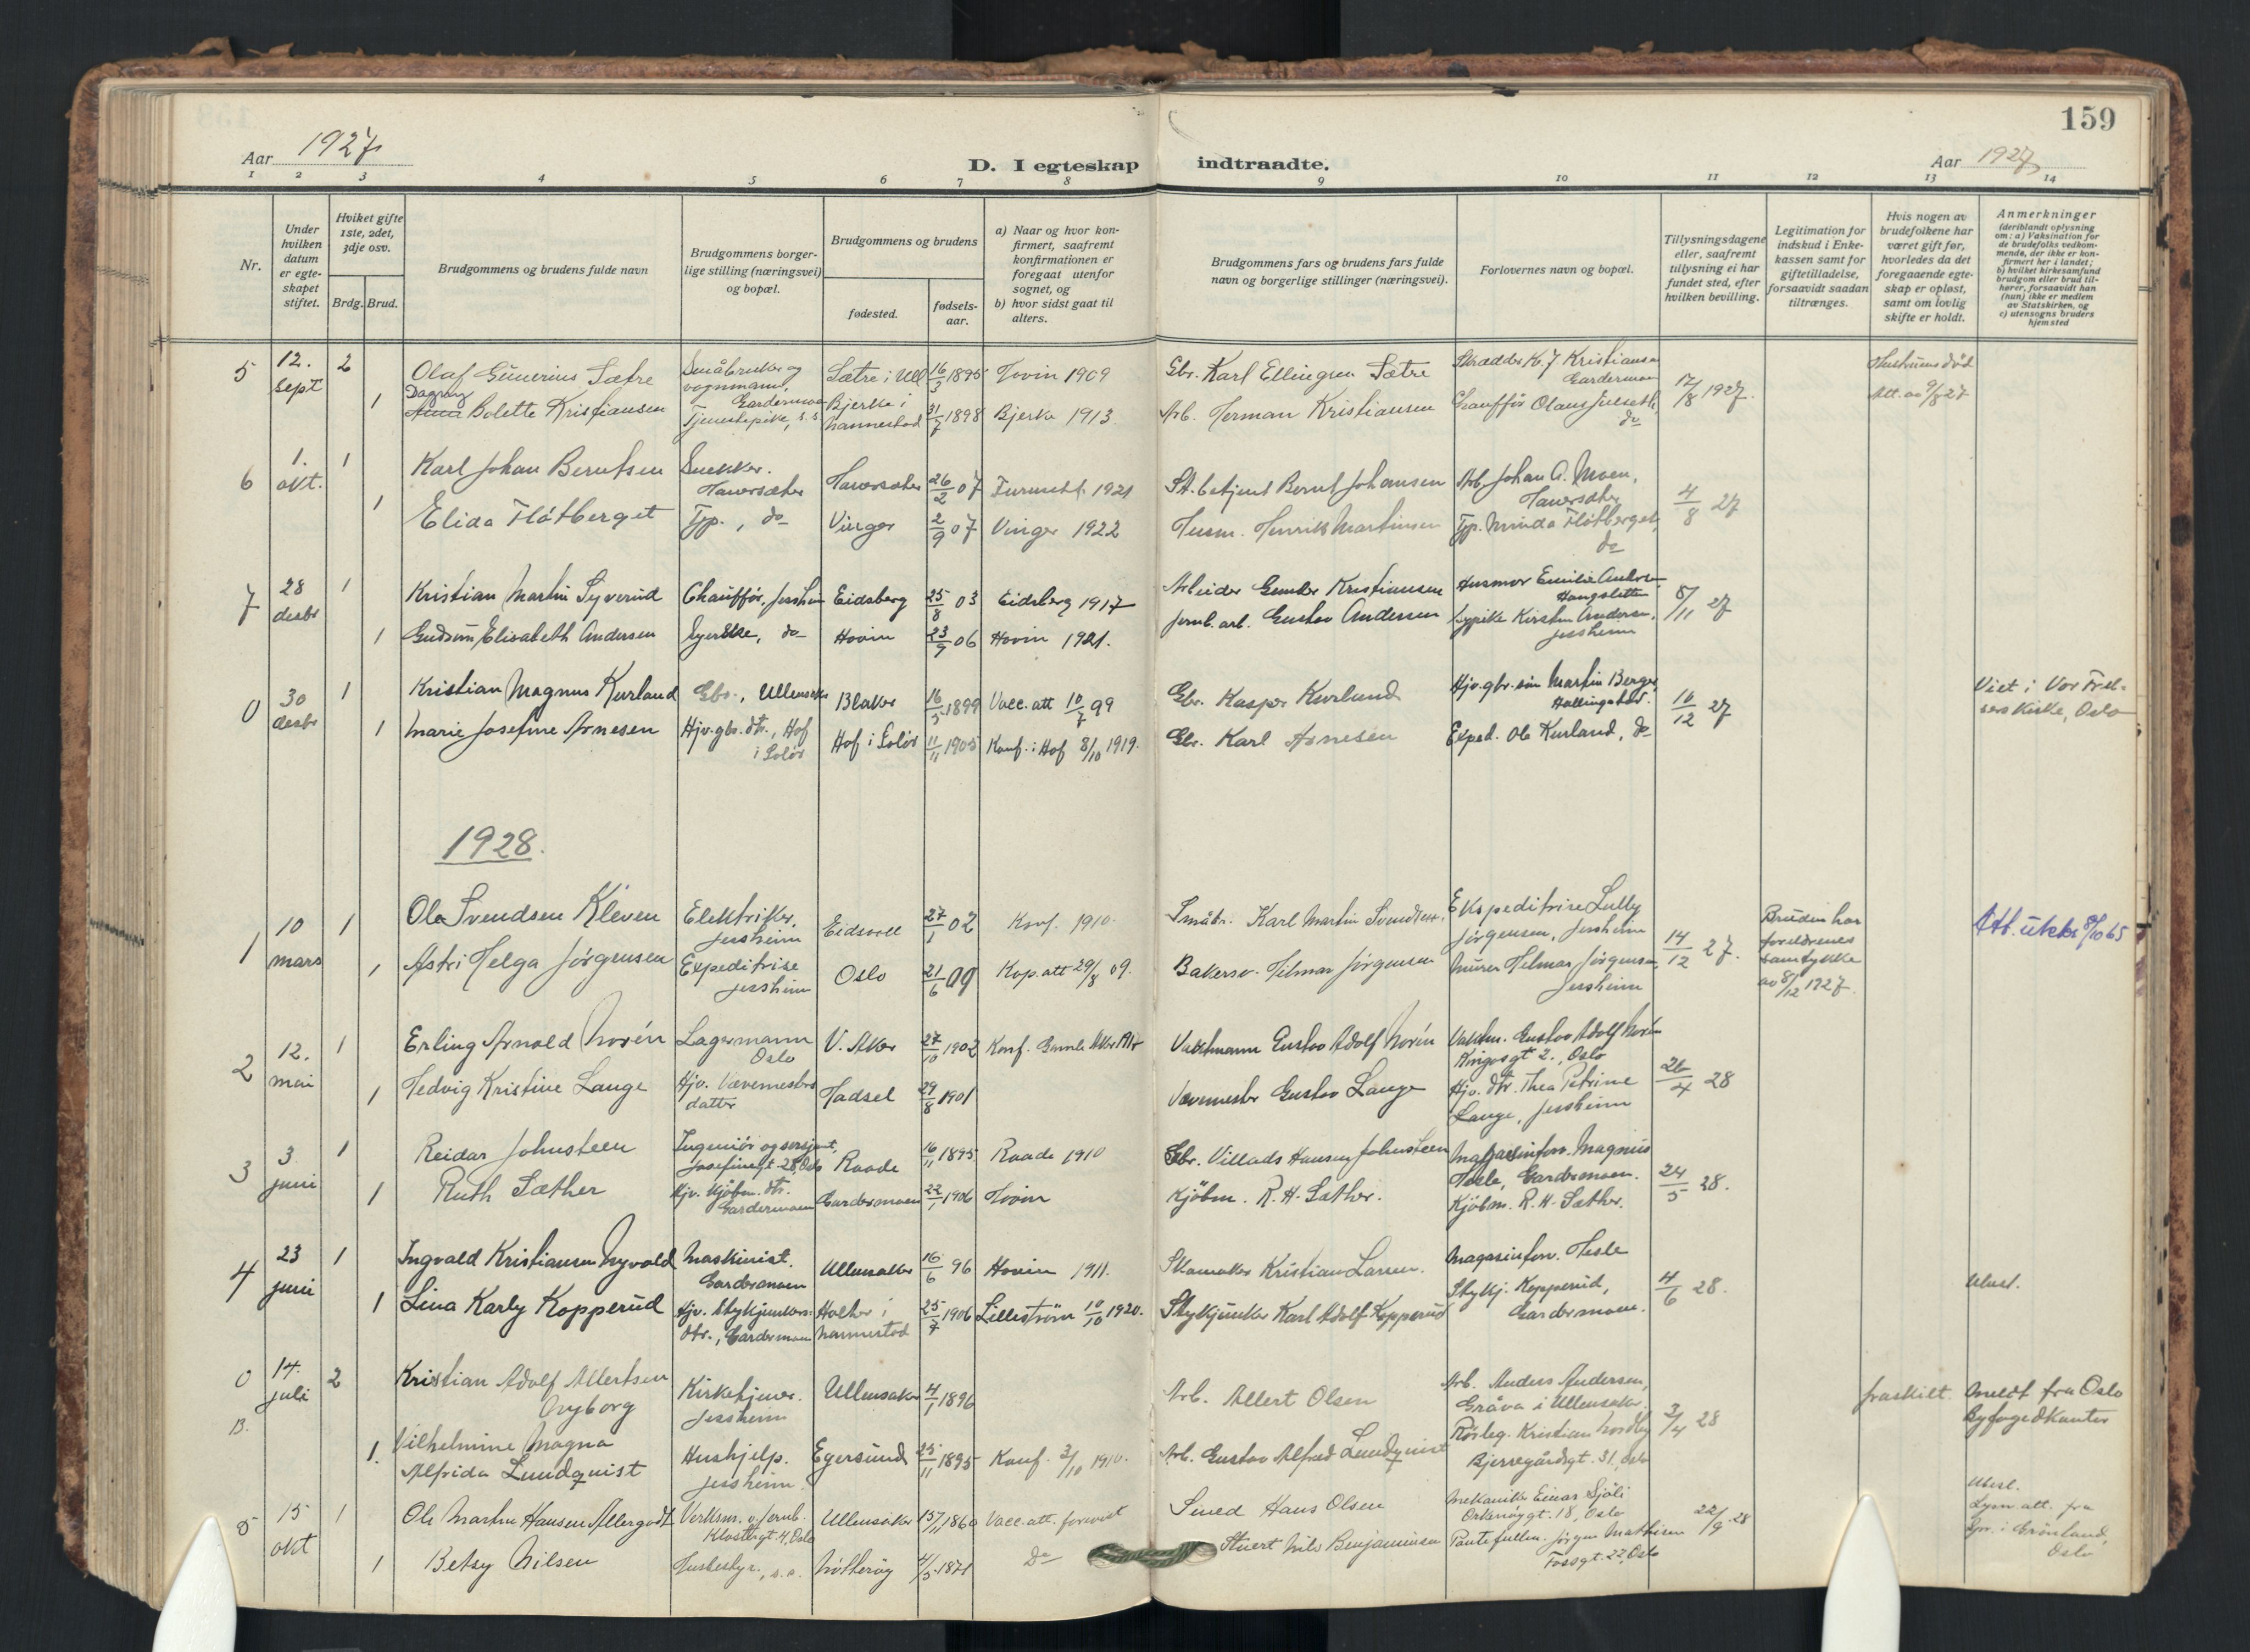 159
Aar 1927
D. I egteskap indtraadte.
Aar 1927
1 2 3 4 5 6 7 8 9 10 11 12 13 14
Nr.
Under hvilken datum er egteskapet stiftet.
Hviket gifte 1ste, 2det, 3dje osv.
Brdg. Brud.
Brudgommens og brudens fulde navn
Brudgommens borgerlige stilling (næringsvei) og bopæl.
Brudgommens og brudens
fødested.
fødselsaar.
a) Naar og hvor konfirmert, saafremt konfirmationen er foregaat utenfor sognet, og
b) hvor sidst gaat til alters.
Brudgommens fars og brudens fars fulde navn og borgerlige stillinger (næringsvei).
Forlovernes navn og bopæl.
Tillysningsdagene eller, saafremt tillysning ei har fundet sted, efter hvilken bevilling.
Legitimation for indskud i Enkekassen samt for giftetilladelse, forsaavidt saadan tiltrænges.
Hvis nogen av brudefolkene har været gift før, hvorledes da det foregaaende egteskap er opløst, samt om lovlig skifte er holdt.
Anmerkninger (deriblandt oplysning om: a) Vaksination for de brudefolks vedkommende, der ikke er konfirmert her i landet; b) hvilket kirkesamfund brudgom eller brud tilhører, forsaavidt han (hun) ikke er medlem av Statskirken, og c) utensogns bruders hjemsted
5 12. sept 2 Olaf Gunerius Sætre Småbruker og vognmand, Gardermoen Sætre i Ull. 16/5 1895 Hovin 1909 Gbr. Karl Ellingsen Sætre Skrædder K. J Kristiansen Gardermoen 17/8 1927. Hustruens död Att. av 9/8 27
1 Dagny Bolette Kristiansen Tjenestepike, s.s. Bjerke i Nannestad 31/7 1898 Bjerke 1913 Arb. Herman Kristiansen Chaufför Olaus Julseth, do
6 1. okt. 1 Karl Johan Berntsen Snekker. Hauersæter Hauersæter 26/2 07 Furuset k. 1921 St.betjent Bernt Johansen Arb. Johan A. Moen, Hauersæter 4/8 27
1 Elida Flåtberget Tjp., do Vinger 2/9 07 Vinger 1922 Husm. Henrik Martinsen Tjp. Minda Flåtberget, do
7 28 desbr 1 Kristian Martin Syverud Chauffør, Jessheim Eidsberg 25/8 03 Eidsberg 1917 Arbeider Gunder Kristiansen Husmor Emilie Andersen Haugsletten 8/11 27
1 Gudrun Elisabeth Andersen Syerske, do Hovin 23/9 06 Hovin 1921. Jernb. arb. Gustav Andersen Sypike Kirsten Andersen, Jessheim
0 30 desbr 1 Kristian Magnus Kurland Gbr., Ullensaker Blaker 16/5 1899 Vacc. att 10/7 99 Gbr. Kasper Kurland Hjv. gbr. søn Martin Berger, 16/12 27 Viet i Vor Frelsers Kirke, Oslo
1 Marie Josefine Arnesen Hjv. gbr. dtr., Hof i Solør Hof i Solør 11/11 1905 Konf. i Hof 8/10 1919. Gbr. Karl Arnesen Exped. Ole Kurland, do
1928.
1 10 mars 1 Ola Svendsen Kleven Elektriker, Jessheim Eidsvoll 27/1 02 Konf. 1910. Småbr. Karl Martin Svendsen. Ekspeditrise Lully Jörgensen, Jessheim 14/12 27. Bruden har foreldrenes samtykke av 8/12 1927. Att. utstedt 8/10 65
1 Astri Helga Jörgensen Expeditrise Jessheim Oslo 21/6 09 Kop. att 29/8 09. Bakersv. Hilmar Jörgensen Murer Hilmar Jörgensen, Jessheim
2 12. mai 1 Erling Arnold Norén Lagermann Oslo V. Aker 27/10 1902 Konf. Gamle Aker Vaktmann Gustav Adolf Norén Vaktm. Gustav Adolf Norén Ringvsgt 2., Oslo 26/4 28
1 Hedvig Kristine Lange Hjv. Vævemesters datter Hadsel 29/8 1901 Vævemester Gustav Lange Hjv. dtr. Thea Petrine Lange, Jessheim
3 3. juni 1 Reidar Johnsteen Ingeniør og sersjant, Josefinegt 28, Oslo Raade 16/11 1895 Raade 1910 Gbr. Villads Hansen Johnsteen Magasinforv. Magnus Hesle, Gardermoen. 24/5 28.
1 Ruth Sæther Hjv. Kjöbm. dtr. Gardermoen Gardermoen 22/1 1906 Hovin Kjöbm. R. H. Sæther. Kjöbm. R. H. Sæther.
4 23 juni 1 Ingvald Kristiansen Nyvold Maskinist. Gardermoen Ullensaker 16/6 96 Hovin 1911. Skomaker Kristian Larsen. Magasinforv. Hesle 4/6 28. Utest.
1 Lina Karly Kopperud Hjv. Skykjunkers dtr., Gardermoen Holter i Nannestad 25/7 1906 Lilleström 10/10 1920. Skykjunker Karl Adolf Kopperud Stykj. Kopperud, Gardermoen.
0 B. 14. juli 2 Kristian Adolf Allertsen Nyborg Kirketjener. Jessheim Ullensaker 4/1 1896 Arb. Allert Olsen Arb. Anders Andersen, Gråva i Ullensaker 3/4 28 fraskilt. Meldt fra Oslo Byfogedkontor
1. Vilhelmine Magna Alfrida Lundquist Hushjelp. Jessheim Egersund 25/11 1895 Konf. 3/10 1910. Arb. Gustav Alfred Lundquist Rörleg. Kristian Nordby Bjerregårdsgt. 31, Oslo
5 15 okt 1 Ole Martin Hansen Allergodt Verksm. v. Jernb. Klostergt. 4, Oslo Ullensaker 15/11 1860 Vacc. att. forevist Smed Hans Olsen Mekaniker Einar Sjöli Orknöygt. 18, Oslo 22/9 28 Lysn. att. fra Spr. i Grönland, Oslo
1 Betsy Nilsen Husbestyr., s.s. Nötteröy 4/5 1871 do Stuert Nils Benjaminsen Pantefullm. Jörgen Mathisen Fossgt. 22, Oslo